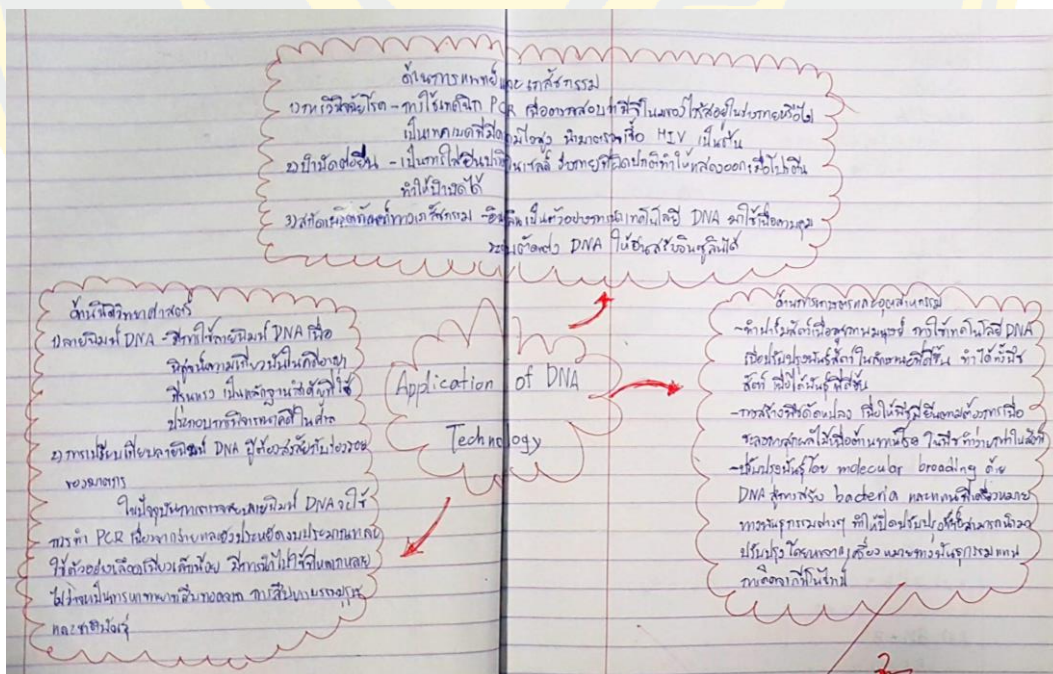 ด้านการแพทย์และเภสัชกรรม
1) การวินิจฉัยโรค - การใช้เทคนิก PCR เพื่อตรวจสอบว่ามีจีโนมของไวรัสอยู่ในร่างกายหรือไม่
เป็นเทคนิคที่มีความไวสูง นำมาตรวจเชื้อ HIV เป็นต้น
2) บำบัดด้วยยีน - เป็นการใส่ยีนปกติในเซลล์ ร่างกายที่ผิดปกติทำให้แสดงออกเพื่อโปรตีน
ทำให้บำบัดได้
3) สกัดผลิตภัณฑ์ทางเภสัชกรรม - อินซูลินเป็นตัวอย่างการนำเทคโนโลยี DNA มาใช้เพื่อควบคุม
ตัดแต่ง DNA ให้ยีนสร้างอินซูลินได้
ด้านนิติวิทยาศาสตร์
1) ลายพิมพ์ DNA - มีการใช้ลายพิมพ์ DNA เพื่อ
พิสูจน์ความเกี่ยวพันในคดีอาญา
ที่รุนแรง เป็นหลักฐานสำคัญที่ใช้
ประกอบการพิจารณาคดีในศาล
2) การเปรียบเทียบลายพิมพ์ DNA ผู้ต้องสงสัยกับร่องรอย
ของฆาตกร
ในปัจจุบันการตรวจสอบลายพิมพ์ DNA จะใช้
การทำ PCR เนื่องจากง่ายและยังประหยัดงบประมาณและ
ใช้ตัวอย่างเลือดเพียงเล็กน้อย มีการนำไปใช้ที่หลากหลาย
ไม่ว่าจะเป็นการหาทายาทสืบทอดมรดก การสืบหาบรรพบุรุษ
และชาติพันธุ์
Application of DNA
Technology
ด้านการเกษตรและอุตสาหกรรม
- ทำฟาร์มสัตว์เพื่อสุขภาพมนุษย์ การใช้เทคโนโลยี DNA
เพื่อปรับปรุงพันธุ์สัตว์ในลักษณะที่ดีขึ้น ทำได้ทั้งพืช
สัตว์ เพื่อได้พันธุ์ที่ดีขึ้น
- การสร้างพืชดัดแปลง เพื่อให้พืชมียีนตามต้องการเพื่อ
ชะลอการสุกผลไม้เพื่อต้านทานโรค ในพืชทำง่ายกว่าในสัตว์
- ปรับปรุงพันธุ์โดย molecular breading ด้วย
DNA สู่การสร้าง bacteria และแผนที่เครื่องหมาย
ทางพันธุกรรมต่างๆ ทำให้นักปรับปรุงพันธุ์สามารถนำมา
ปรับปรุงโดยหาจากเครื่องหมายทางพันธุกรรมแทน
การคัดจากฟีโนไทป์
2